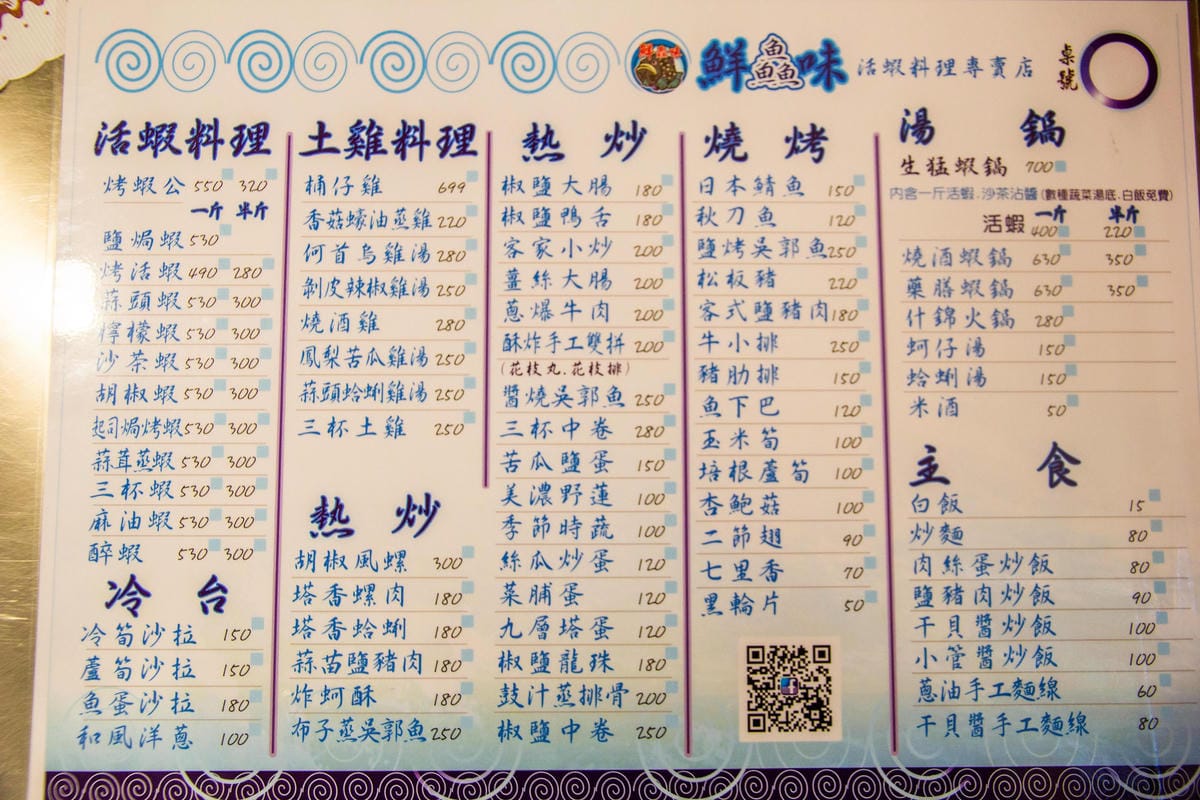 鮮鱻味 活蝦料理專賣店 桌號
活蝦料理
烤蝦公 550 320
一斤 半斤
鹽焗蝦 530
烤活蝦 490 280
蒜頭蝦 530 300
檸檬蝦 530 300
沙茶蝦 530 300
胡椒蝦 530 300
起司焗烤蝦 530 300
蒜茸蒸蝦 530 300
三杯蝦 530 300
麻油蝦 530 300
醉蝦 530 300
冷台
冷筍沙拉 150
蘆筍沙拉 150
魚蛋沙拉 180
和風洋蔥 100
土雞料理
桶仔雞 699
香菇蠔油蒸雞 220
何首烏雞湯 280
剝皮辣椒雞湯 250
燒酒雞 280
鳳梨苦瓜雞湯 250
蒜頭蛤蜊雞湯 250
三杯土雞 250
熱炒
胡椒風螺 300
塔香螺肉 180
塔香蛤蜊 180
蒜苗鹽豬肉 180
炸蚵酥 180
布子蒸吳郭魚 250
熱炒
椒鹽大腸 180
椒鹽鴨舌 180
客家小炒 200
薑絲大腸 200
蔥爆牛肉 200
酥炸手工雙拼 200
(花枝丸.花枝排)
醬燒吳郭魚 250
三杯中卷 280
苦瓜鹽蛋 150
美濃野蓮 100
季節時蔬 100
絲瓜炒蛋 120
菜脯蛋 120
九層塔蛋 120
椒鹽龍珠 180
鼓汁蒸排骨 200
椒鹽中卷 250
燒烤
日本鯖魚 150
秋刀魚 120
鹽烤吳郭魚 250
松板豬 220
客式鹽豬肉 180
牛小排 250
豬肋排 150
魚下巴 120
玉米筍 100
培根蘆筍 100
杏鮑菇 100
二節翅 90
七里香 70
黑輪片 50
湯鍋
生猛蝦鍋 700
內含一斤活蝦.沙茶沾醬(數種蔬菜湯底.白飯免費)
一斤 半斤
活蝦 400 220
燒酒蝦鍋 630 350
藥膳蝦鍋 630 350
什錦火鍋 280
蚵仔湯 150
蛤蜊湯 150
米酒 50
主食
白飯 15
炒麵 80
肉絲蛋炒飯 80
鹽豬肉炒飯 90
干貝醬炒飯 100
小管醬炒飯 100
蔥油手工麵線 60
干貝醬手工麵線 80